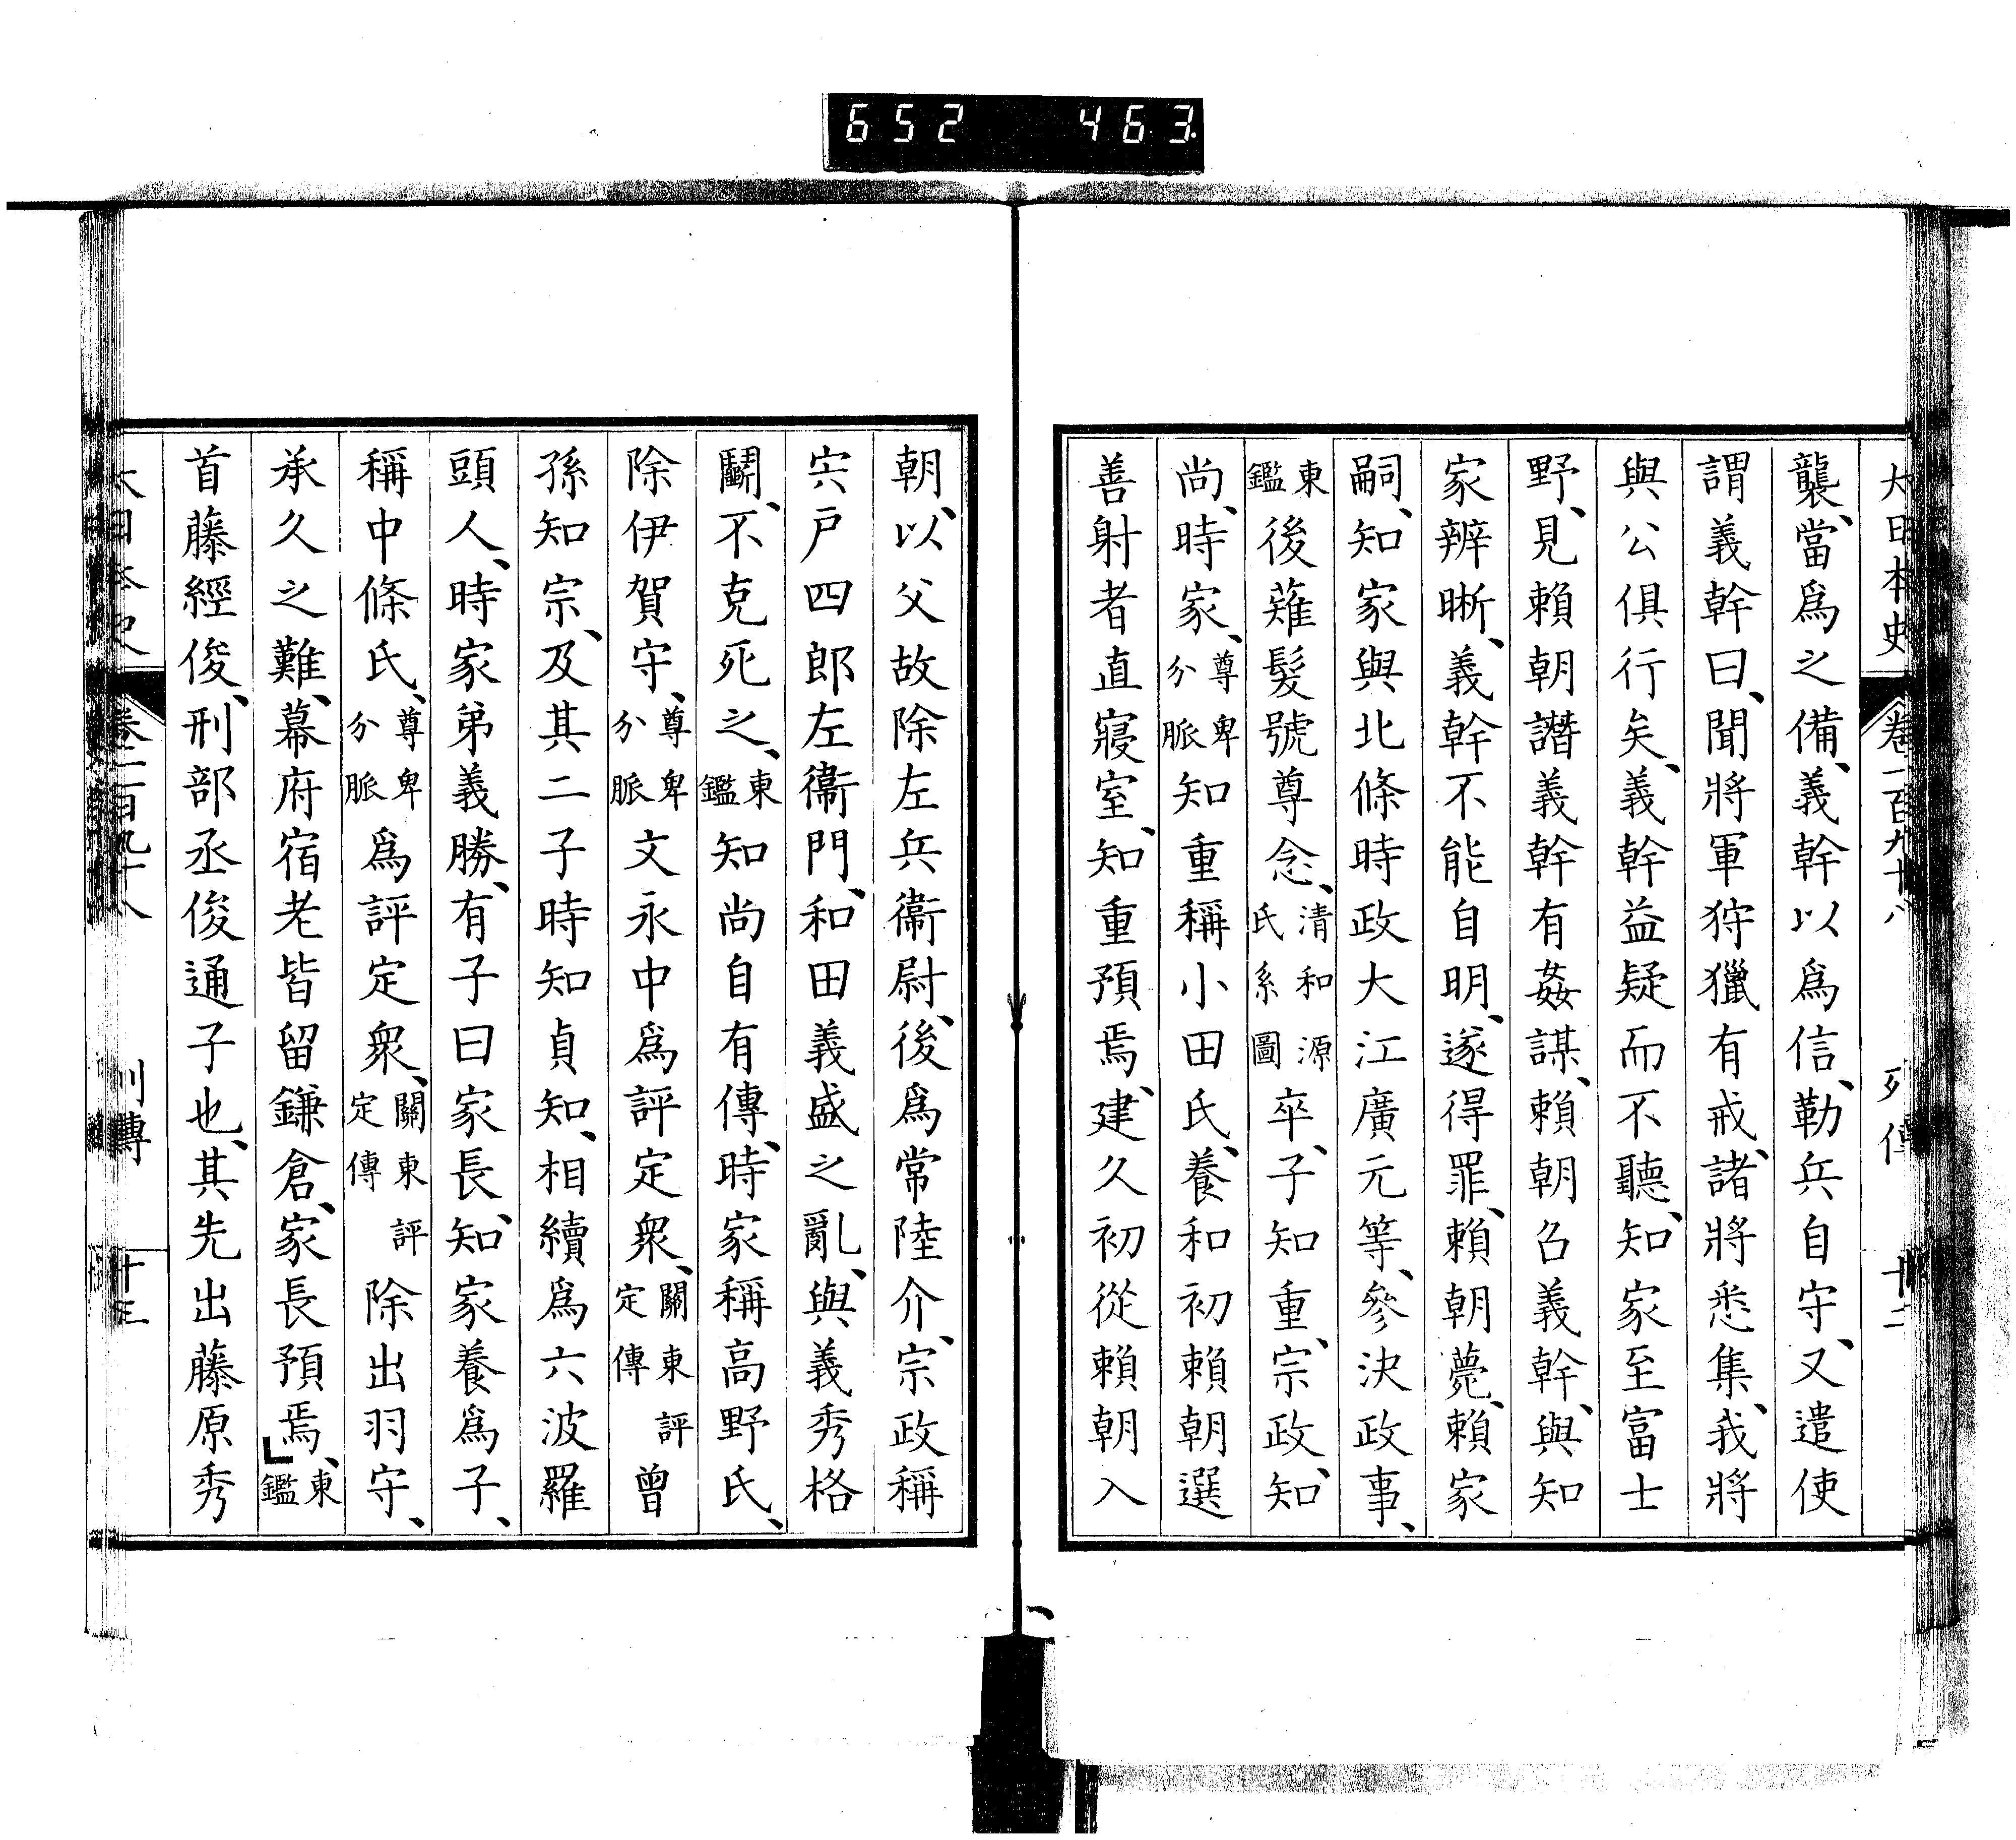 652 463
大日本史 卷一百九十八 列傳 十二
襲、當爲之備、義幹以爲信、勒兵自守、又遣使
謂義幹曰、聞將軍狩獵有戒、諸將悉集、我將
與公俱行矣、義幹益疑而不聽、知家至富士
野、見賴朝譖義幹有姦謀、賴朝召義幹、與知
家辨晣、義幹不能自明、遂得罪、賴朝薨、賴家
嗣、知家與北條時政大江廣元等、參決政事、
東鑑後薙髮號尊念、清和源氏系圖卒、子知重、宗政、知
尚、時家、尊卑分脈知重稱小田氏、養和初賴朝選
善射者直寢室、知重預焉、建久初從賴朝入
朝、以父故除左兵衞尉、後爲常陸介、宗政稱
宍戶四郎左衞門、和田義盛之亂、與義秀格
鬭、不克死之、東鑑知尚自有傳、時家稱高野氏、
除伊賀守、尊卑分脈文永中爲評定衆、關東評定傳曾
孫知宗、及其二子時知貞知、相續爲六波羅
頭人、時家弟義勝、有子曰家長、知家養爲子、
稱中條氏、尊卑分脈爲評定衆、關東評定傳除出羽守、
承久之難、幕府宿老皆留鎌倉、家長預焉、東鑑
首藤經俊、刑部丞俊通子也、其先出藤原秀
大日本史 卷一百九十八 列傳 十三